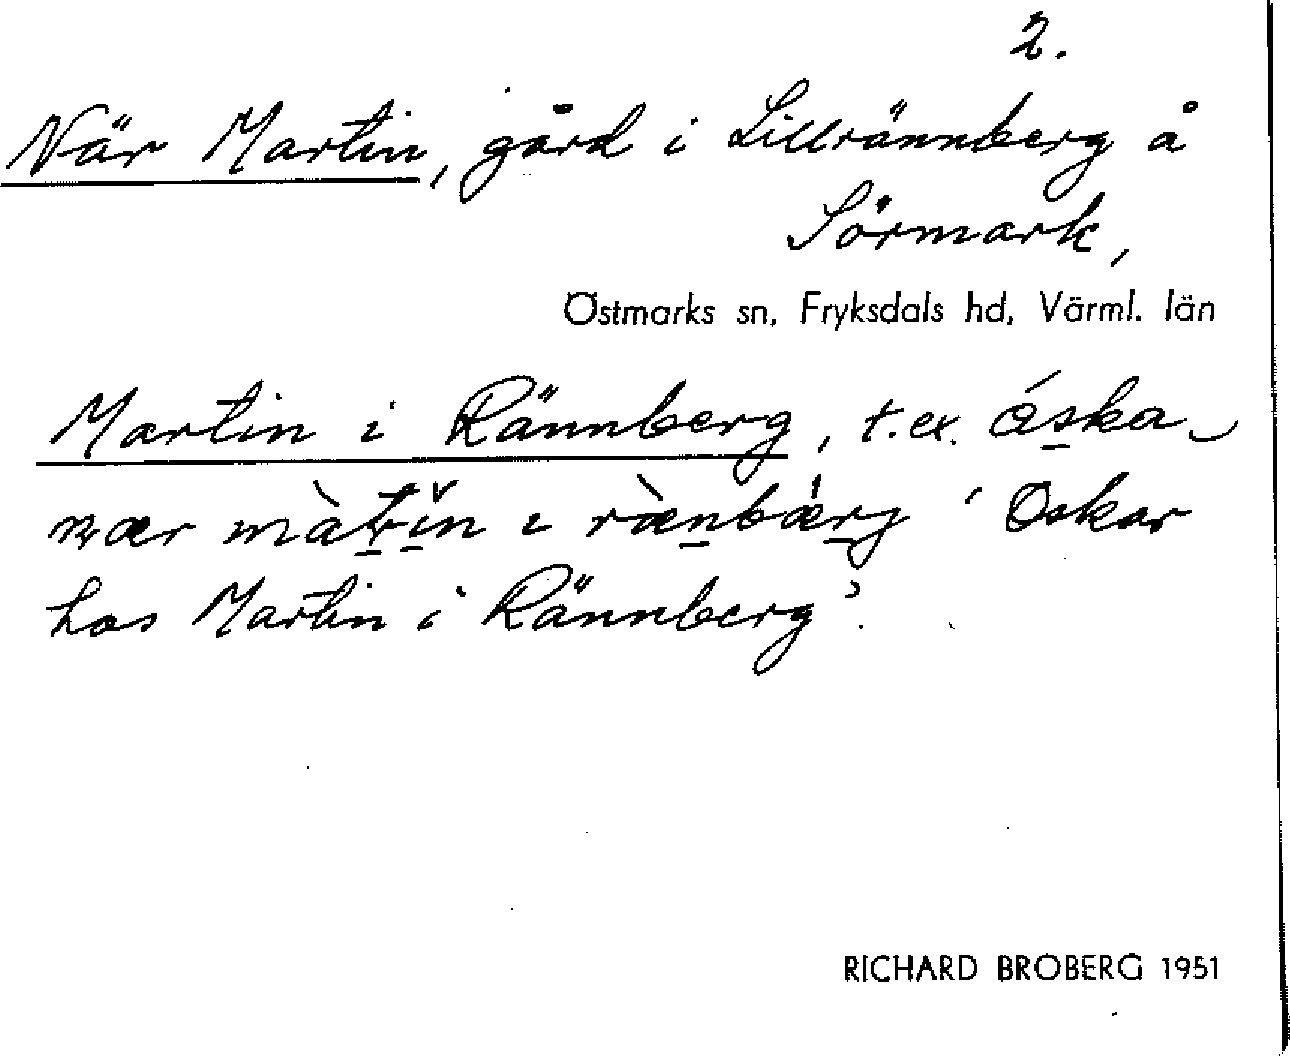 2.
När Martin, gård i Lillrännberg å
Sörmark,
Östmarks sn, Fryksdals hd, Värml. län
Martin i Rännberg, t.ex. óska
nær màtin ı rænbærj ' Oskar
hos Martin i Rännberg'.
RICHARD BROBERG 1951